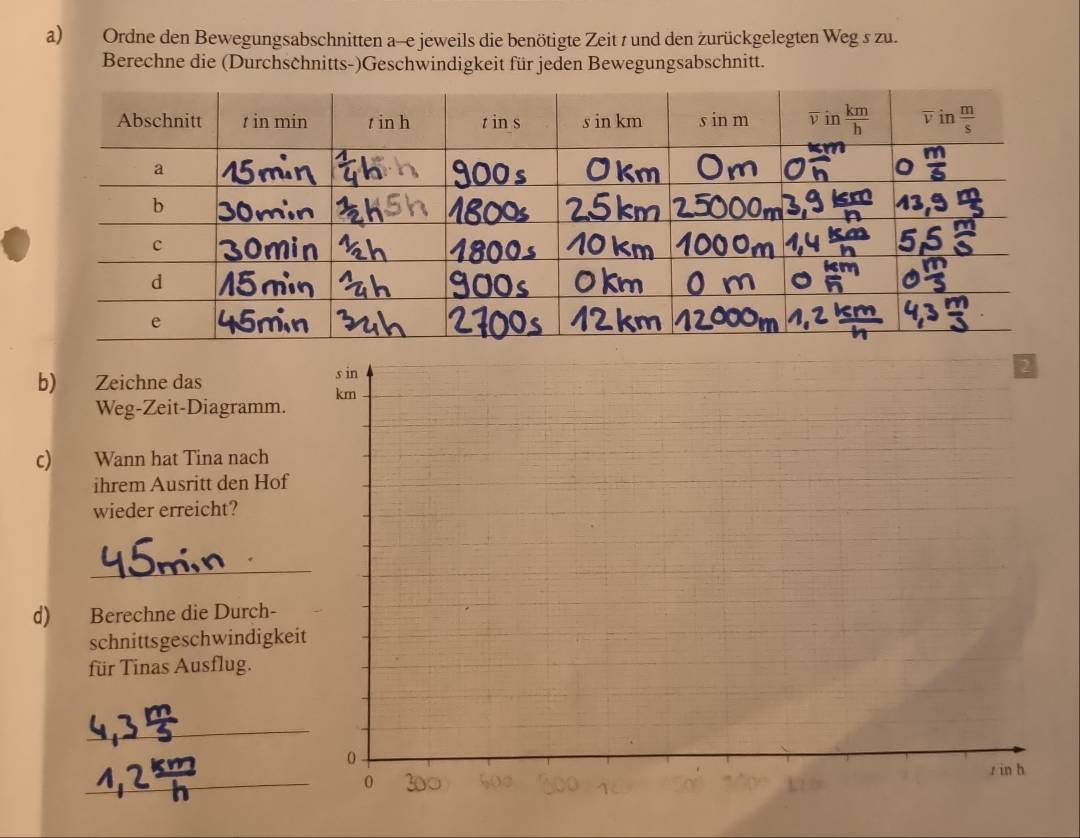 a) Ordne den Bewegungsabschnitten a–e jeweils die benötigte Zeit t und den zurückgelegten Weg s zu.
Berechne die (Durchschnitts-)Geschwindigkeit für jeden Bewegungsabschnitt.
Abschnitt t in min t in h t in s s in km s in m v̅ in km/h v̅ in m/s
a 15min 1/4h h 900s 0km 0m 0 km/h 0 m/s
b 30min 1/2h 5h 1800s 25km 25000m 3,9 km/h 13,9 m/s
c 30min 1/2h 1800s 10km 1000m 1,4 km/h 5,5 m/s
d 15min 1/4h 900s 0km 0 m 0 km/h 0 m/s
e 45min 3/4h 2700s 12km 12000m 1,2 km/h 4,3 m/s
2
b) Zeichne das
Weg-Zeit-Diagramm.
s in
km
c) Wann hat Tina nach
ihrem Ausritt den Hof
wieder erreicht?
45min
d) Berechne die Durch-
schnittsgeschwindigkeit
für Tinas Ausflug.
4,3 m/s
1,2 km/h
0
0 300 600 t in h